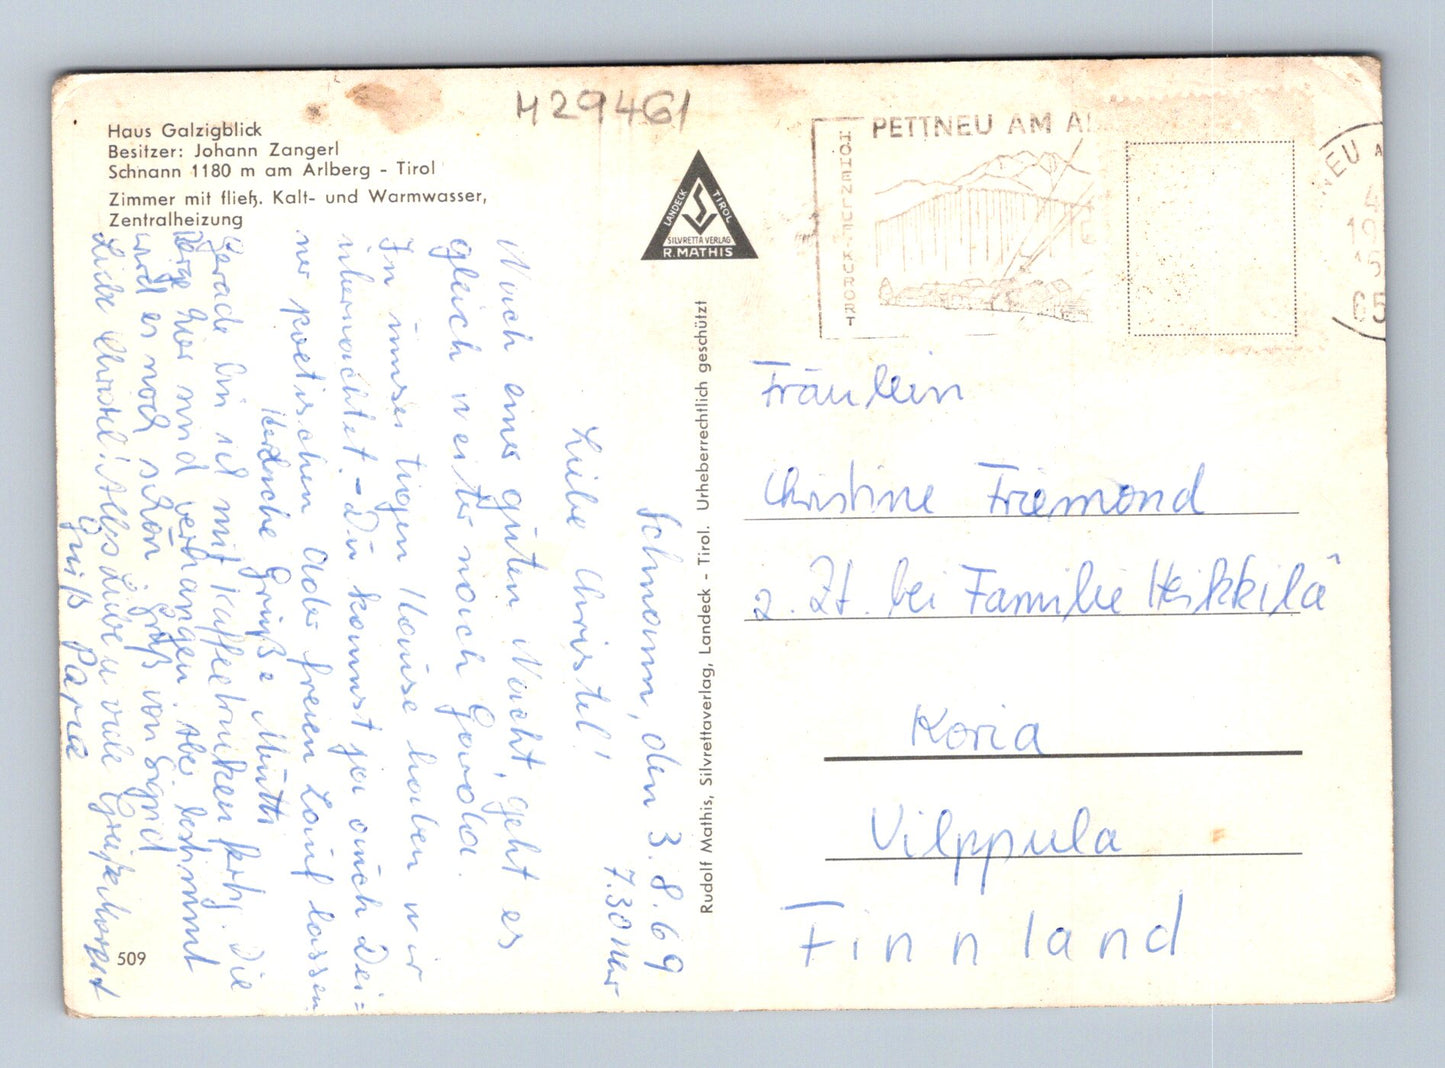 Haus Galzigblick
Besitzer: Johann Zangerl
Schnann 1180 m am Arlberg - Tirol
Zimmer mit fließ. Kalt- und Warmwasser,
Zentralheizung
H29461
LANDECK
TIROL
SILVRETTA VERLAG
R. MATHIS
PETTNEU AM A
HÖHENLUFT-KURORT
NEU A
4
19
15
65
Rudolf Mathis, Silvrettaverlag, Landeck - Tirol. Urheberrechtlich geschützt
Schnann, den 3.8.69
7.30 Uhr
Liebe Christel!
Nach einer guten Nacht, geht es
gleich weiter nach
In unser tigen Hause haben wir
übernachtet. - Du kannst ja auch Dei=
ner poetischen Ader freien Lauf lassen
Herzliche Grüße Mutti
Gerade bin ich mit Kaffeetrinken fertig. Die
Berge hier sind verhangen. Aber bestimmt
wird es noch schön. Gruß von Sigrid
Liebe Christel! Alles Liebe u viele
Gruß Papa
509
Fräulein
Christine Friemond
z. Zt. bei Familie Heikkilä
Koria
Vilppula
Finnland